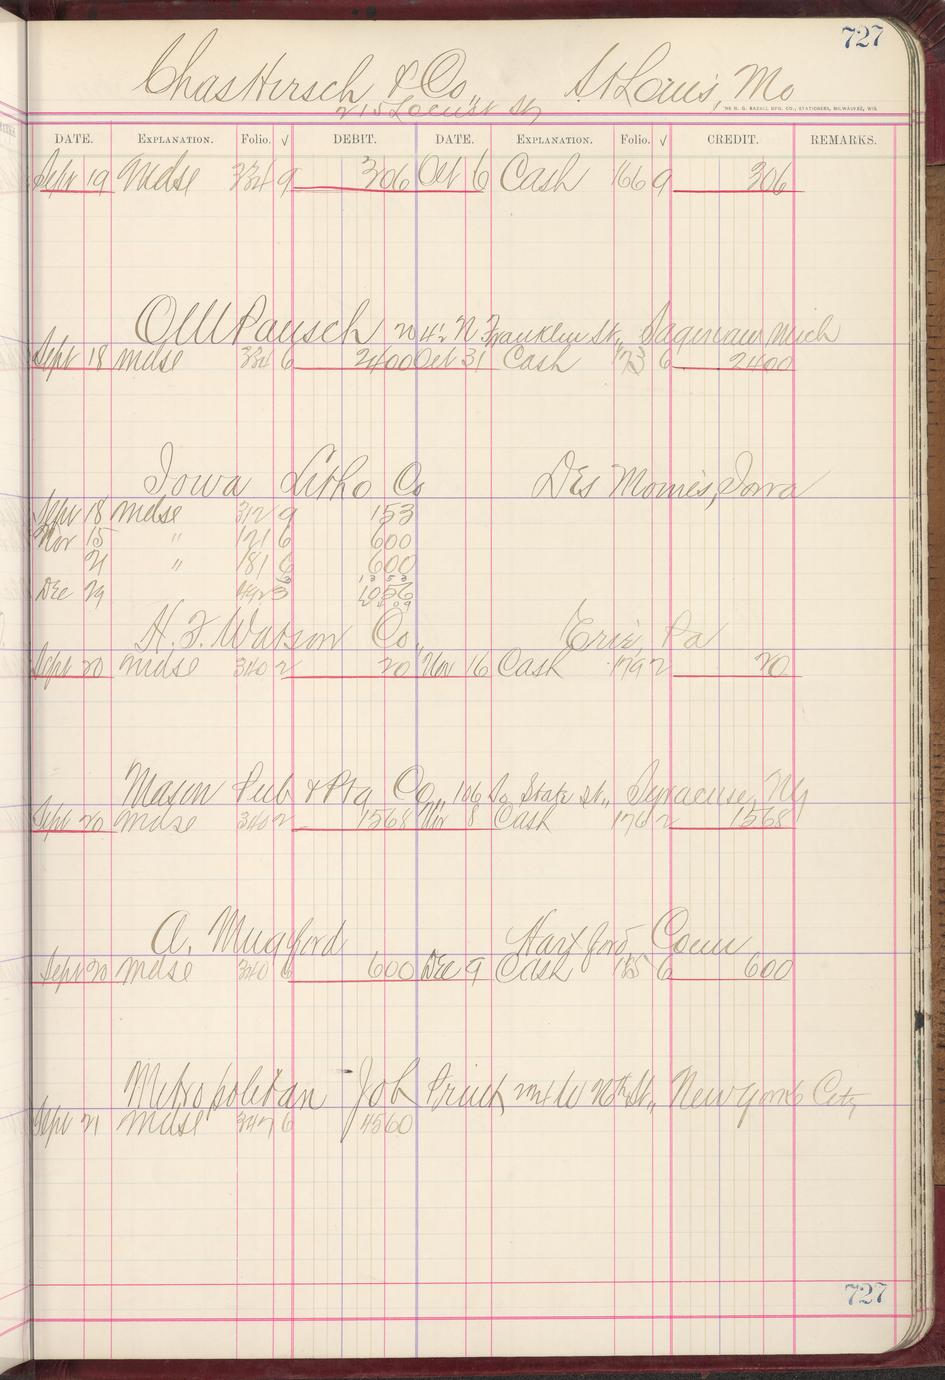 727
Chas Hirsch & Co, St Louis, Mo
215 Locust St
THE H. G. RAZALL MFG. CO., STATIONERS, MILWAUKEE, WIS.
DATE. EXPLANATION. Folio. √ DEBIT. DATE. EXPLANATION. Folio. √ CREDIT. REMARKS.
Sept 19 Mdse 334 9 306 Oct 6 Cash 166 9 306
Franklin St., Saginaw Mich
Sept 18 Mdse 334 6 2400 Oct 31 Cash 173 6 2400
Iowa Litho Co Des Moines, Iowa
Sept 18 Mdse 312 9 153
Nov 15 " 121 6 600
21 " 181 6 600
1353
Dec 29 492 3 1056
2409
H. F. Watson Co., Erie, Pa
Sept 20 Mdse 340 2 20 Nov 16 Cash 179 2 20
Mason Pub & Ptg Co., 106 So State St., Syracuse, Ny
Sept 20 Mdse 340 2 1568 Nov 8 Cash 176 2 1568
A. Mugford Hartford Conn
Sept 20 Mdse 340 6 600 Dec 9 Cash 185 6 600
Metropolitan Job Print W 20th St., New York City
Sept 21 Mdse 347 6 4560
727